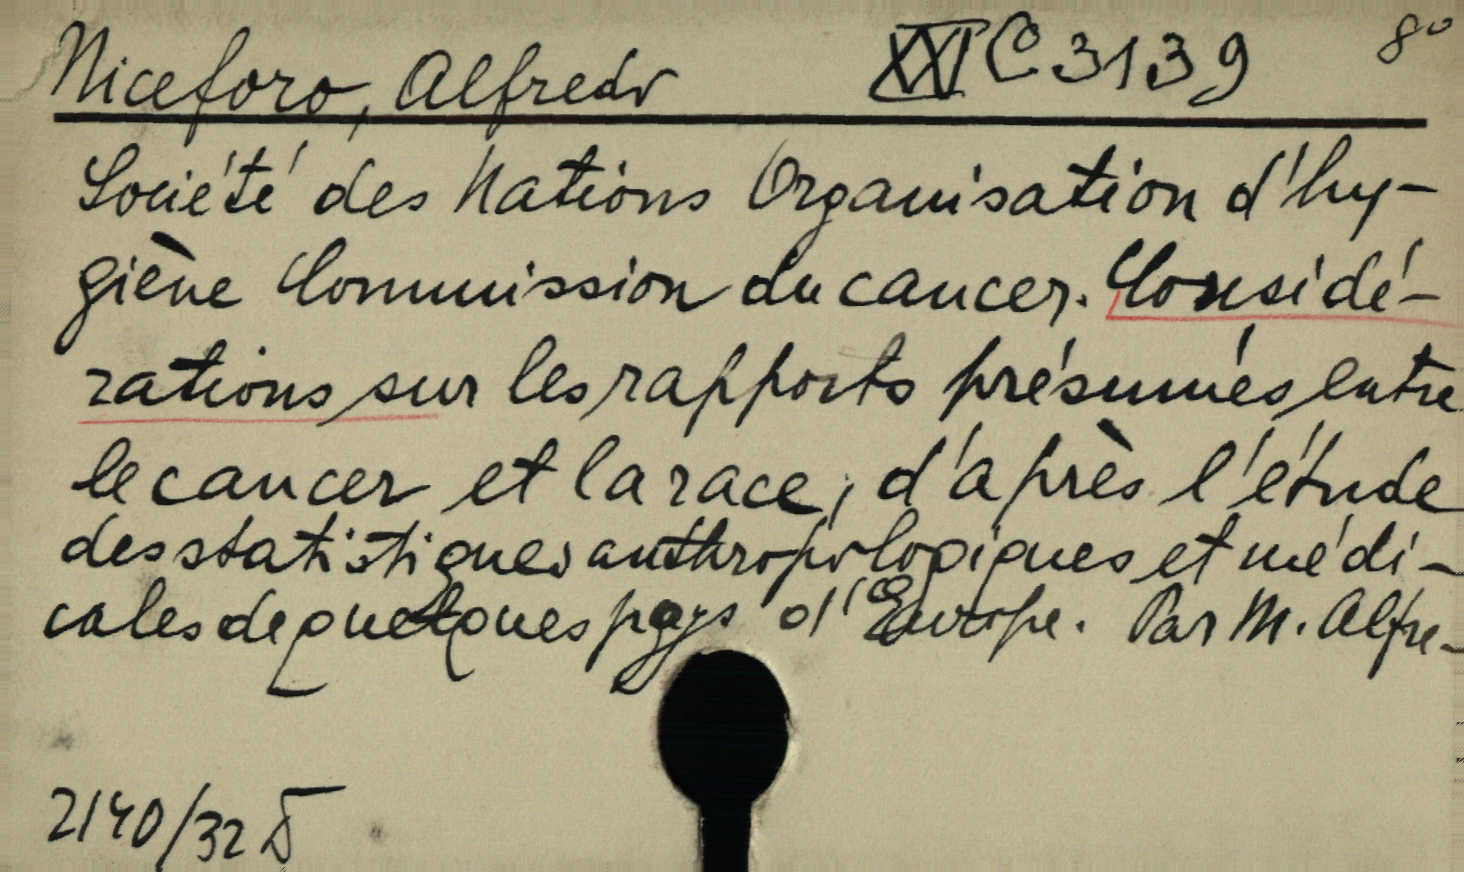 Niceforo, Alfredo XXI C 3139 8°
Société des Nations Organisation d'hy-
giène Commission du cancer. Considé-
rations sur les rapports présumés entre
le cancer et la race, d'après l'étude
des statistiques anthropologiques et médi-
cales de quelques pays d'Europe. Par M. Alfre-
2140/32